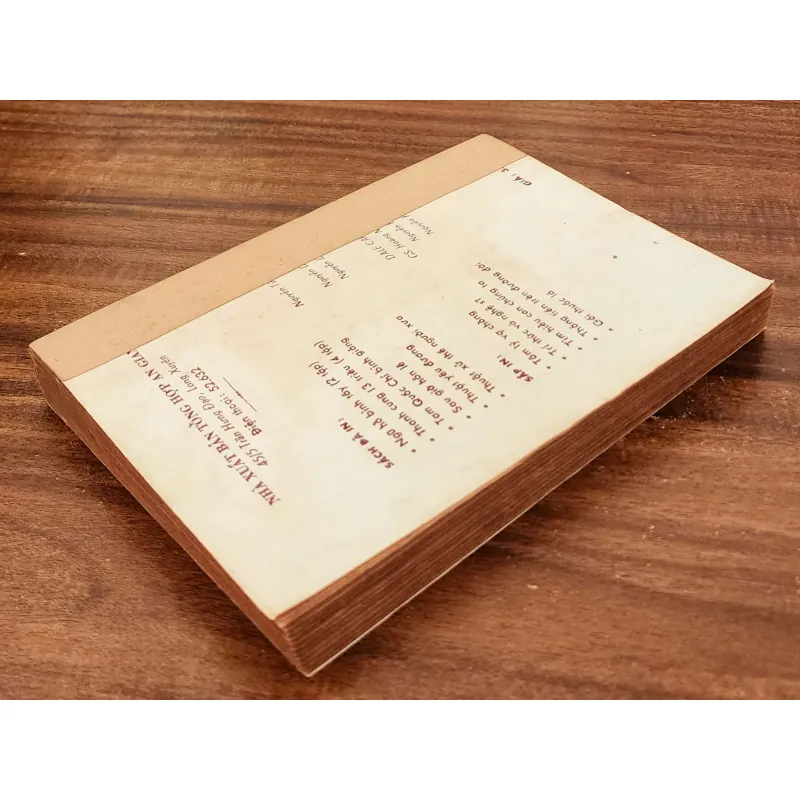 NHÀ XUẤT BẢN TỔNG HỢP AN GIA
45|5 Trần Hưng Đạo, Long Xuyên
Điện thoại: 52.632
SÁCH ĐÃ IN:
• Ngũ hổ bình tây (2 tập)
• Thanh cung 13 triều (4 tập)
• Tam Quốc Chí bình giảng
• Sau giờ hôn lễ
• Thuật yêu đương
• Thuật xử thế người xưa
Nguyễn
Nguyễn
Nguyễn
SẮP IN:
• Tâm lý vợ chồng
• Trí thức và nghệ sĩ
• Tìm hiểu con chúng ta
• Thẳng tiến trên đường đời
• Gói thuốc lá
DALE CA
GS. Hoàng
Nguyễn
Nguyễn
Giá: 3.